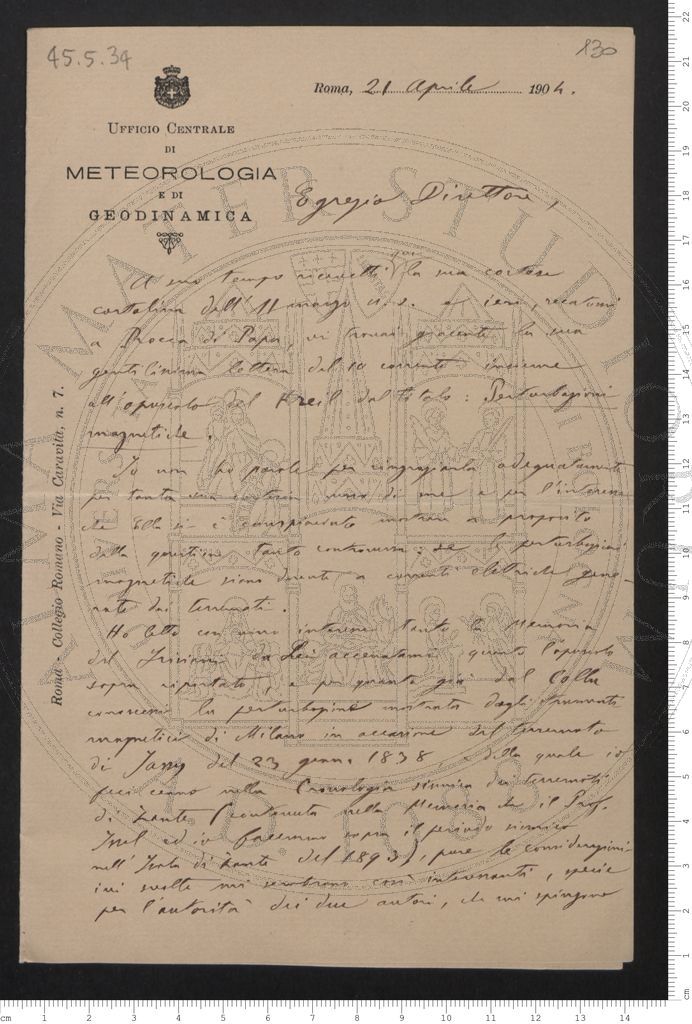 45.5.34
130
Roma, 21 Aprile 1904.
UFFICIO CENTRALE
DI
METEOROLOGIA
E DI
GEODINAMICA
Roma - Collegio Romano - Via Caravita, n. 7.
Egregio Direttore,
A suo tempo ricevetti qui la sua cortese
cartolina dell'11 marzo u. s. e ieri, recatomi
a Rocca di Papa, vi trovai giacente la sua
gentilissima lettera del 10 corrente insieme
all'opuscolo del Kreil dal titolo: Perturbazioni
magnetiche.
Io non ho parole per ringraziarla adeguatamente
per tanta sua cortesia verso di me e per l'interesse
che Ella si è compiaciuto mostrare a proposito
della questione tanto controversa: se le perturbazioni
magnetiche siano dovute a correnti elettriche gene-
rate dai terremoti.
Ho letto con vivo interesse tanto la Memoria
del da Lei accennatami, quanto l'opuscolo
sopra riportato, e per quanto già dal Colla
conoscessi la perturbazione mostrata dagli strumenti
magnetici di Milano in occasione del terremoto
di Jassy del 23 genn. 1838, e della quale io
feci cenno nella Cronologia sismica dei terremoti
di Zante (contenuta nella Memoria che il Prof.
Issel ed io facemmo sopra il periodo sismico
nell'Isola di Zante del 1893), pure le considerazioni
ivi svolte mi sembrano così interessanti, specie
per l'autorità dei due autori, che mi spingono